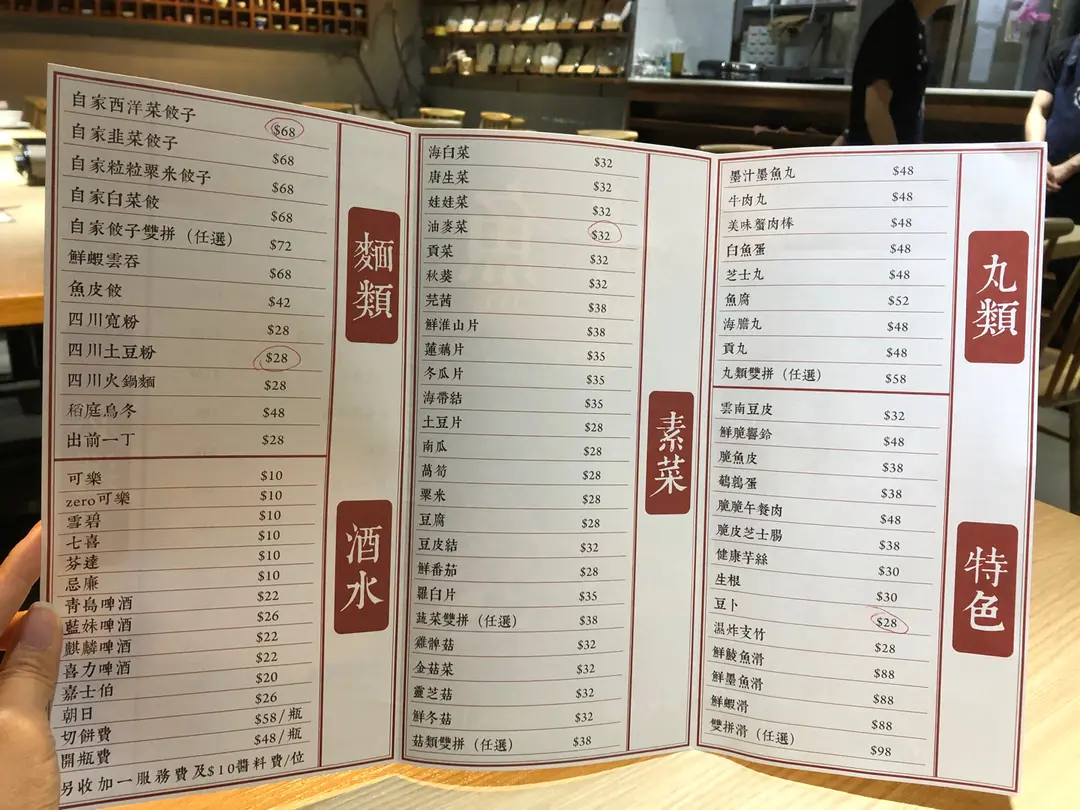 麵類
自家西洋菜餃子 $68
自家韭菜餃子 $68
自家粒粒粟米餃子 $68
自家白菜餃 $68
自家餃子雙拼（任選） $72
鮮蝦雲吞 $68
魚皮餃 $42
四川寬粉 $28
四川土豆粉 $28
四川火鍋麵 $28
稻庭烏冬 $48
出前一丁 $28
酒水
可樂 $10
zero可樂 $10
雪碧 $10
七喜 $10
芬達 $10
忌廉 $10
青島啤酒 $22
藍妹啤酒 $26
麒麟啤酒 $22
喜力啤酒 $22
嘉士伯 $20
朝日 $26
切餅費 $58/瓶
開瓶費 $48/瓶
另收加一服務費及$10醬料費/位
素菜
海白菜 $32
唐生菜 $32
娃娃菜 $32
油麥菜 $32
貢菜 $32
秋葵 $32
芫茜 $38
鮮淮山片 $38
蓮藕片 $35
冬瓜片 $35
海帶結 $35
土豆片 $28
南瓜 $28
萵筍 $28
粟米 $28
豆腐 $28
豆皮結 $32
鮮番茄 $28
羅白片 $35
蔬菜雙拼（任選） $38
雞髀菇 $32
金菇菜 $32
靈芝菇 $32
鮮冬菇 $32
菇類雙拼（任選） $38
丸類
墨汁墨魚丸 $48
牛肉丸 $48
美味蟹肉棒 $48
白魚蛋 $48
芝士丸 $48
魚腐 $52
海膽丸 $48
貢丸 $48
丸類雙拼（任選） $58
特色
雲南豆皮 $32
鮮脆響鈴 $48
脆魚皮 $38
鵪鶉蛋 $38
脆脆午餐肉 $48
脆皮芝士腸 $38
健康芋絲 $30
生根 $30
豆卜 $28
濕炸支竹 $28
鮮鯪魚滑 $88
鮮墨魚滑 $88
鮮蝦滑 $88
雙拼滑（任選） $98